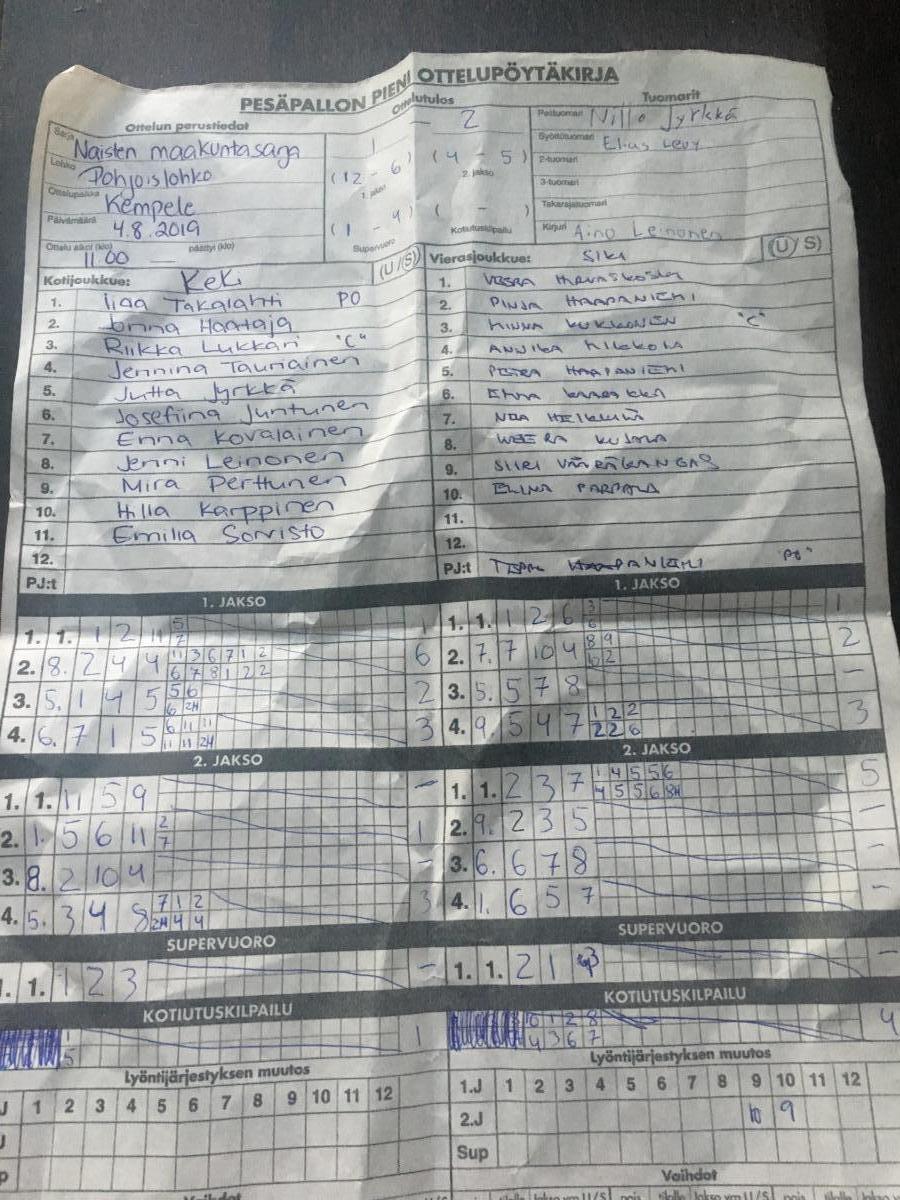 PESÄPALLON PIENI OTTELUPÖYTÄKIRJA
Ottelun perustiedot
Sarja Naisten maakuntasarja
Lohko Pohjoislohko
Ottelupaikka Kempele
Päivämäärä 4.8.2019
Ottelu alkoi (klo) 11.00 päättyi (klo) —
Ottelutulos
1 — 2
(12 - 6) (4 - 5)
1. jakso 2. jakso
(1 - 4) ( - )
Supervuoro Kotiutuskilpailu
Tuomarit
Pelituomari Niilo Jyrkkä
Syöttötuomari Elias Levy
2-tuomari
3-tuomari
Takarajatuomari
Kirjuri Aino Leinonen
Kotijoukkue: KeKi (U/S)
1. Iiaa Takalahti PO
2. Jonna Haataja
3. Riikka Lukkari "C"
4. Jennina Tauriainen
5. Jutta Jyrkkä
6. Josefiina Juntunen
7. Enna Kovalainen
8. Jenni Leinonen
9. Mira Perttunen
10. Hilla Karppinen
11. Emilia Sorvisto
12.
PJ:t
Vierasjoukkue: SiKi (U/S)
1.
2. PINJA HAAPANIEMI
3. MINNA KUKKONEN "C"
4. ANNIKA
5. PETRA HAAPANIEMI
6.
7. NOA
8. WEERA
9. SIIRI VÄYRÄKANGAS
10. ELINA PARPALA
11.
12.
PJ:t HAAPANIEMI "PO"
1. JAKSO
1. 1. 1 2 11 5 7 1
2. 8. 2 4 4 11 3 6 7 1 2 6 7 8 1 2 2 6
3. 5. 1 4 5 5 6 6 2H 2
4. 6. 7 1 5 6 11 11 11 11 2H 3
1. JAKSO
1. 1. 1 2 6 3 6 1
2. 7. 7 10 4 8 9 10 2 2
3. 5. 5 7 8 –
4. 9. 5 4 7 1 2 2 2 2 6 3
2. JAKSO
1. 1. 11 5 9 –
2. 1. 5 6 11 2 7 1
3. 8. 2 10 4 –
4. 5. 3 4 8 7 1 2 2H 4 4 3
2. JAKSO
1. 1. 2 3 7 1 4 5 5 6 4 5 5 6 8H 5
2. 9. 2 3 5 –
3. 6. 6 7 8 –
4. 1. 6 5 7 –
SUPERVUORO
1. 1. 1 2 3 –
SUPERVUORO
1. 1. 2 1 –
KOTIUTUSKILPAILU
5 1
KOTIUTUSKILPAILU
10 1 2 8
4 3 6 7 4
Lyöntijärjestyksen muutos
J 1 2 3 4 5 6 7 8 9 10 11 12
J
p
Lyöntijärjestyksen muutos
1.J 1 2 3 4 5 6 7 8 9 10 11 12
2.J 10 9
Sup
Vaihdot
Vaihdot